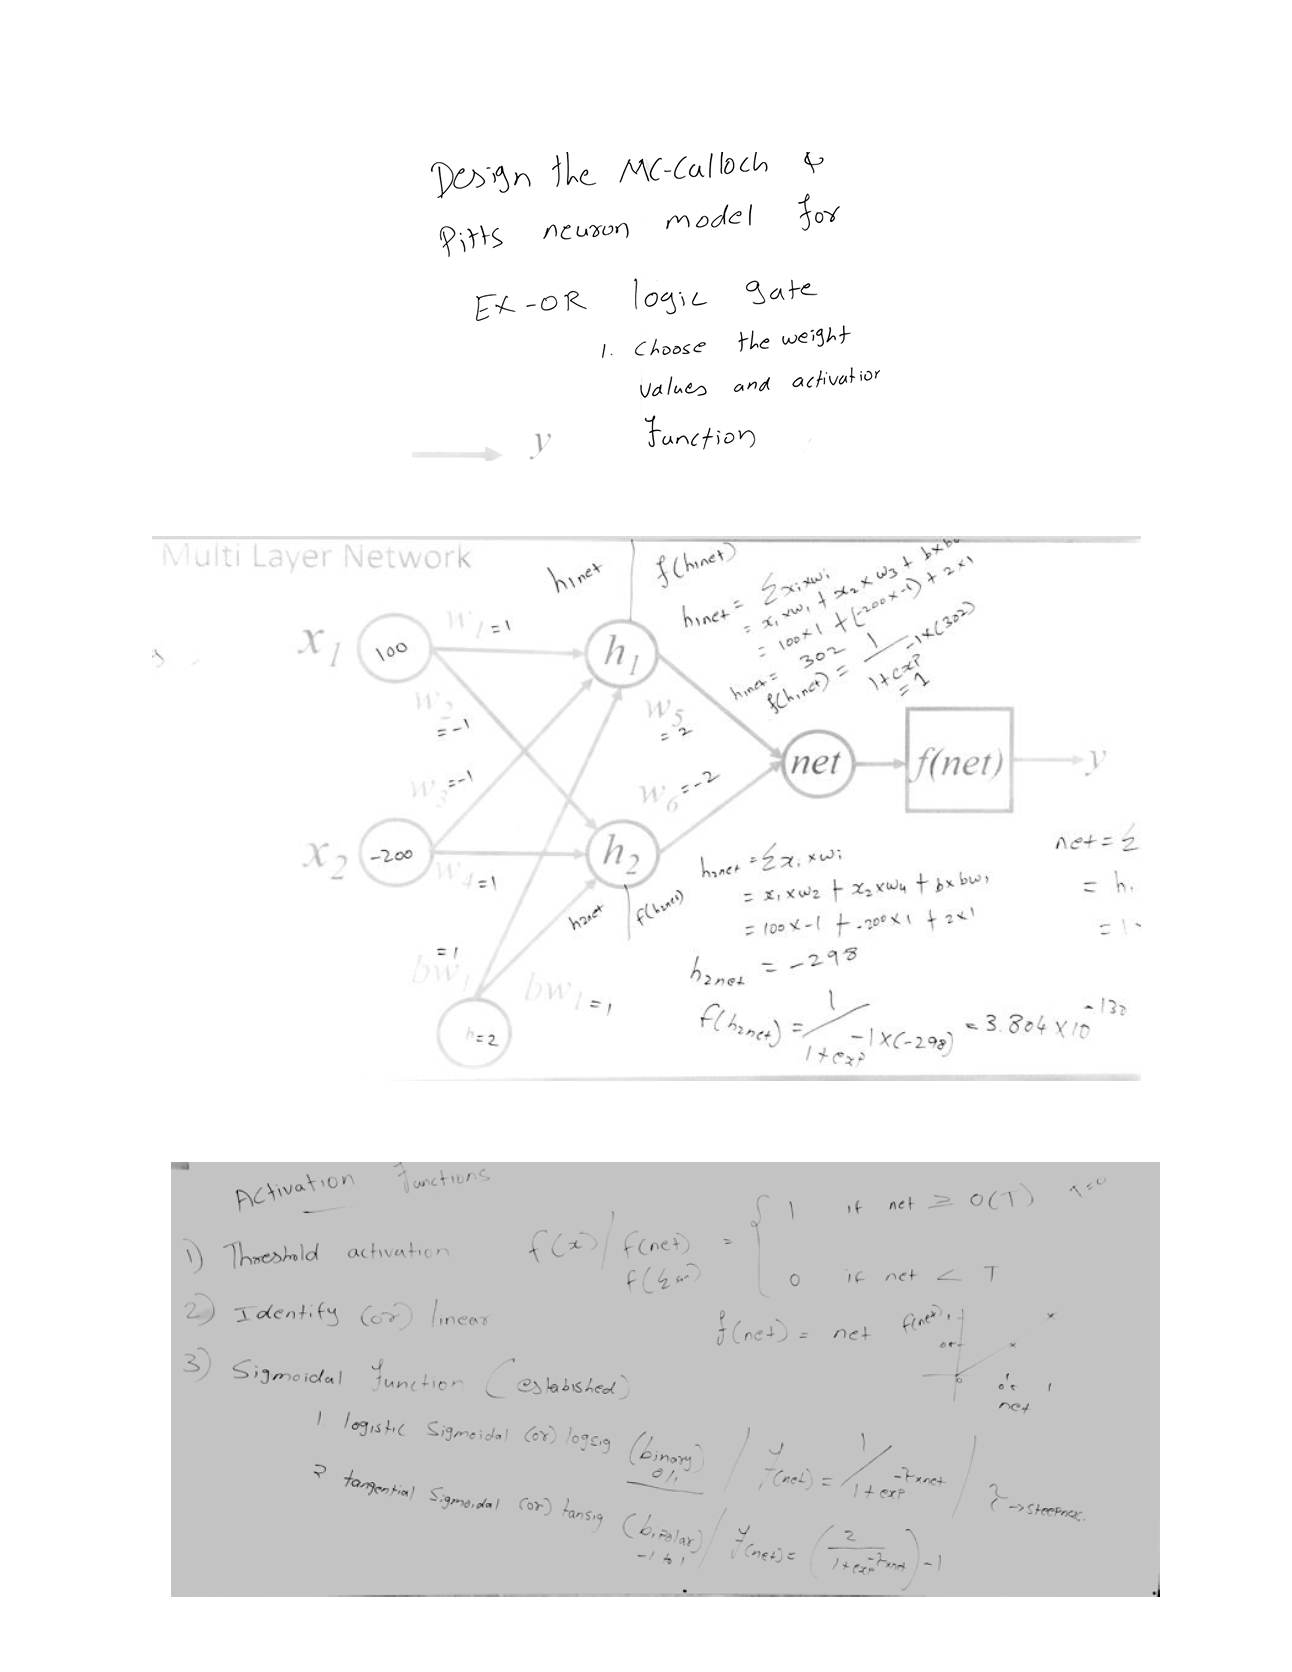 Design the MC-Calloch &
Pitts neuron model for
EX-OR logic gate
1. Choose the weight
values and activation
Function
y
Multi Layer Network
h1net
f(h1net)
h1net = Σxi×wi
= x1×w1 + x2×w3 + b×bw
= 100×1 + (-200×-1) + 2×1
h1net = 302
f(h1net) = 1/1+exp -1×(302)
= 1
x1
100
w1 =1
h1
w2
=-1
w5
= 2
w3 =-1
w6 =-2
net
f(net)
y
x2
-200
w4 =1
h2
h2net
f(h2net)
h2net = Σxi×wi
= x1×w2 + x2×w4 + b×bw1
= 100×-1 + -200×1 + 2×1
h2net = -298
f(h2net) = 1/1+exp -1×(-298) = 3.804×10 -130
net = Σ
= h1
= 1
bw1
=1
bw1 =1
b=2
Activation Functions
1) Threshold activation f(x) / f(net) = { 1 if net ≥ 0(T) T=0
0 if net < T
2) Identify (or) linear f(net) = net
f(net)
net
3) Sigmoidal function (estabished)
1. logistic sigmoidal (or) logsig (binary) / f(net) = 1/1+exp -τ×net / τ → steepness.
0/1
2 tangential sigmoidal (or) tansig (bipolar) / f(net) = (2/1+exp -τ×net) -1
-1 to 1